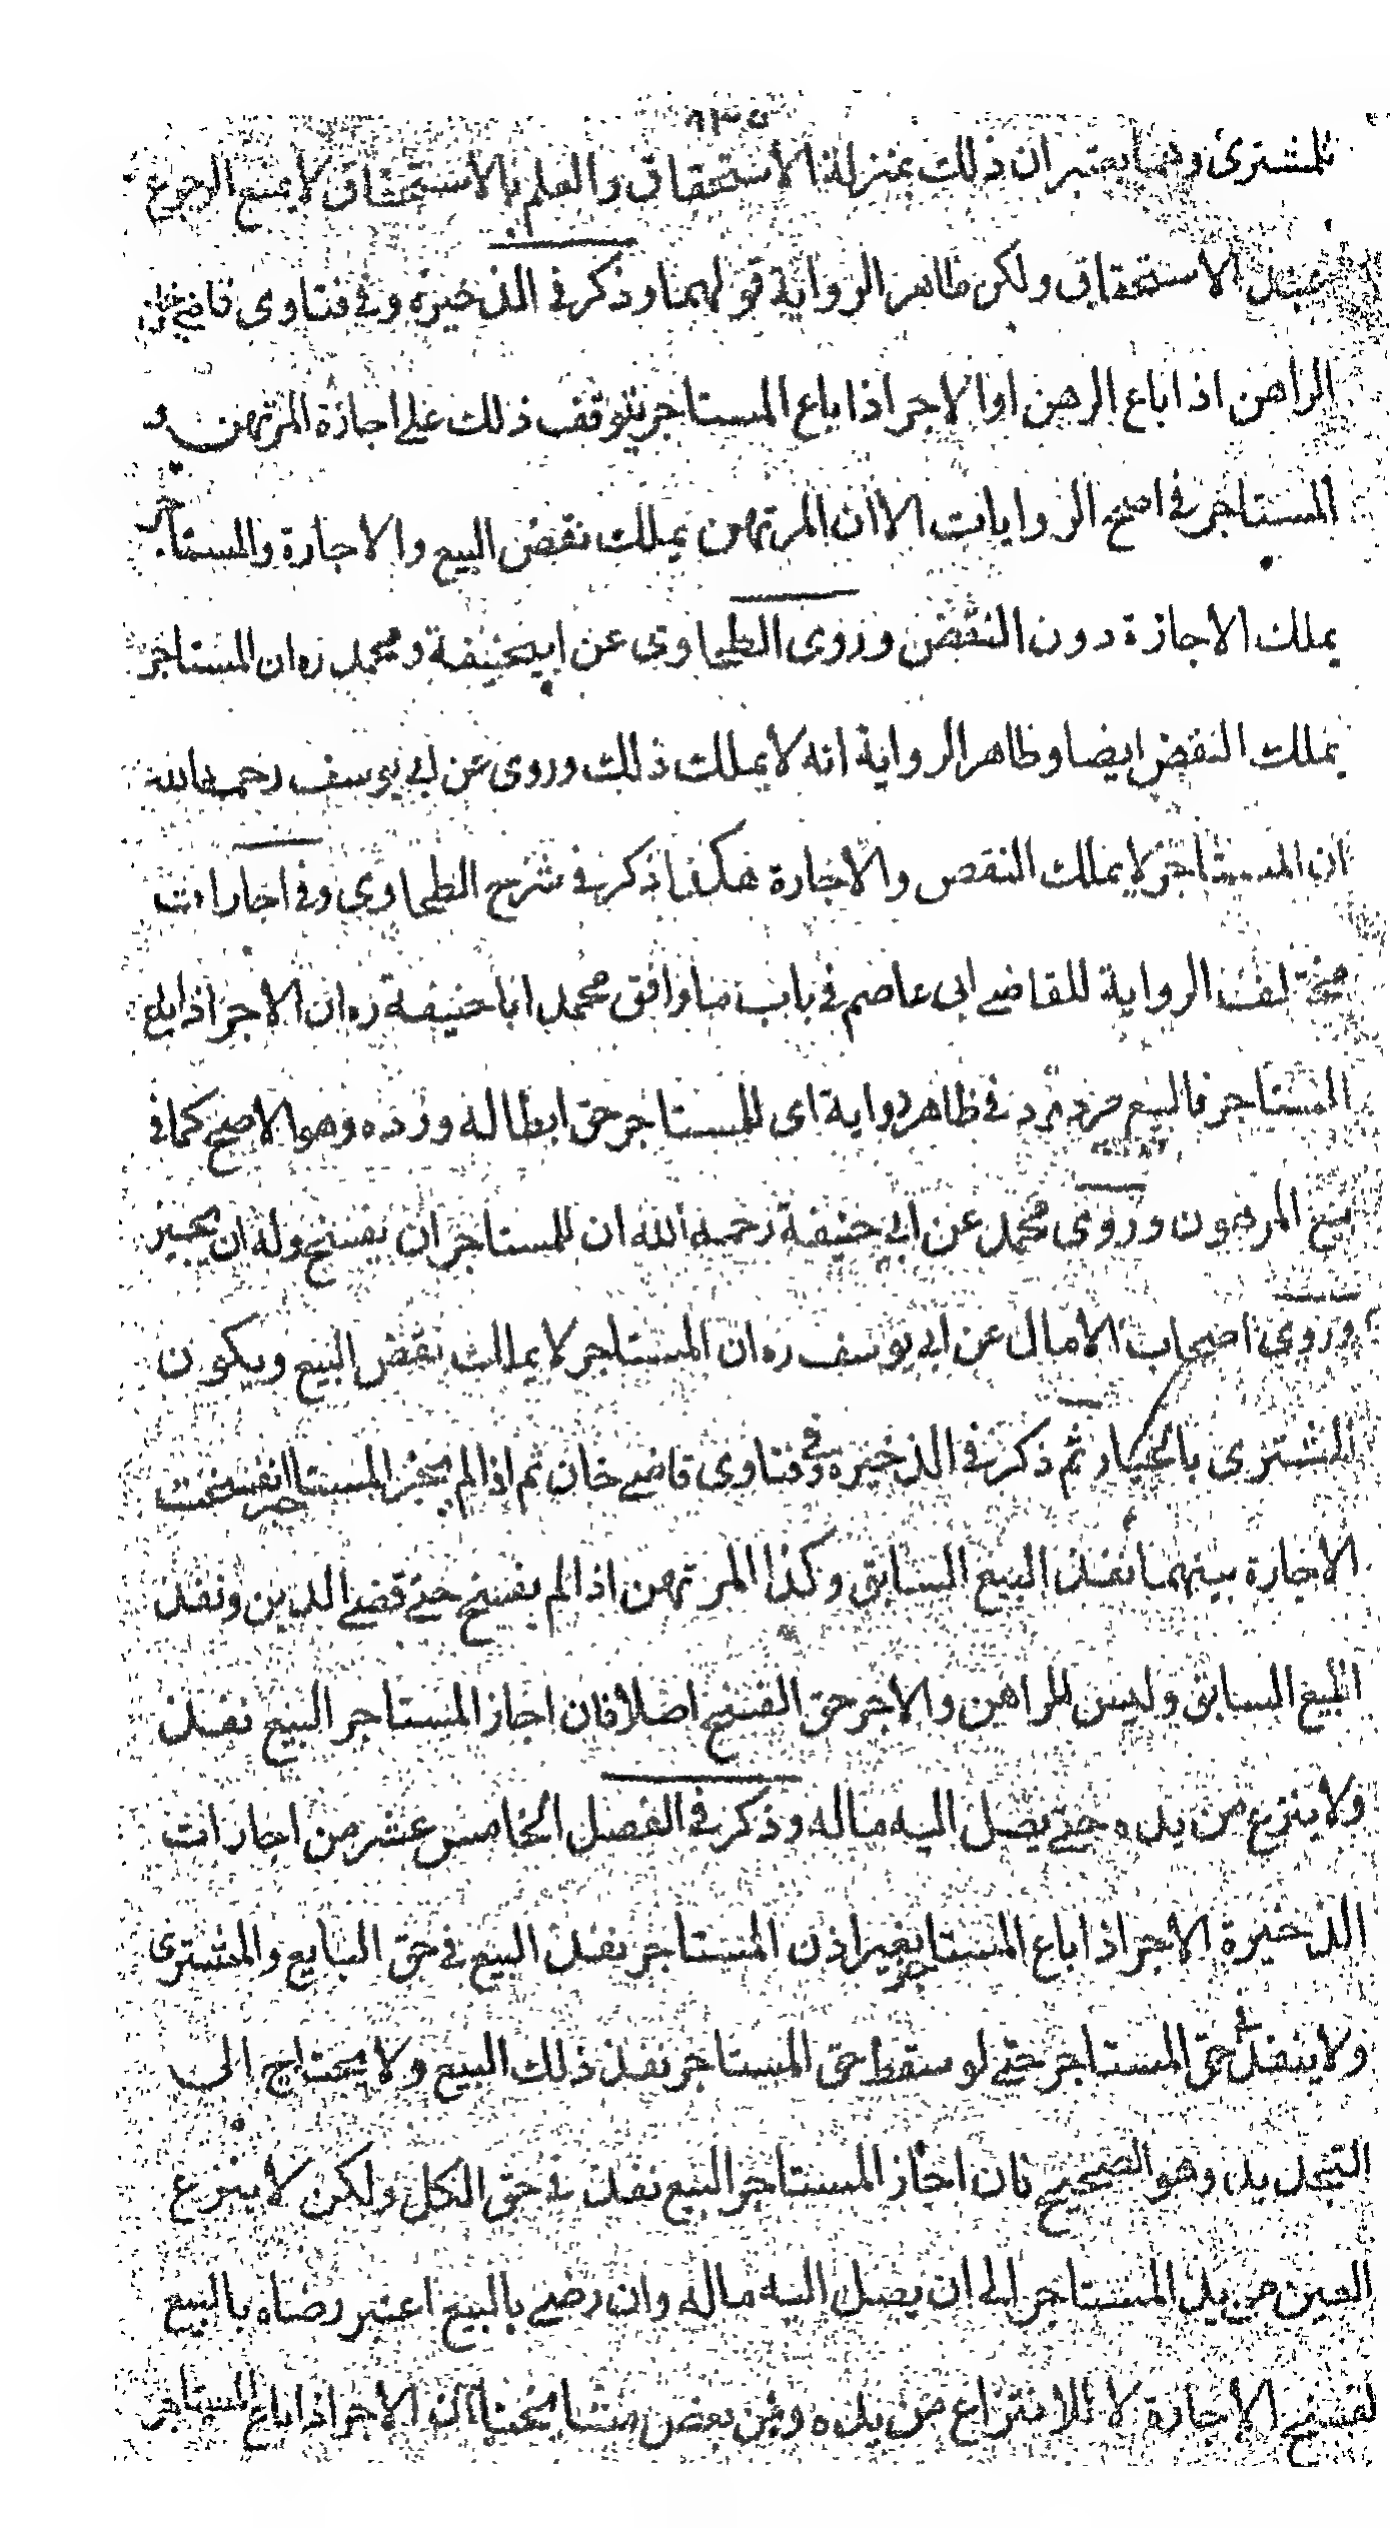 ٩٣٥
للمشترى وهما يعتبران ذلك بمنزلة الاستحقاق والعلم بالاستحقاق لا يمنع الرجوع
عند الاستحقاق ولكن ظاهر الرواية قولهما وذكر فى الذخيرة وفى فتاوى قاضى خان
الراهن اذا باع الرهن اوالاجر اذا باع المستاجر يتوقف ذلك على اجازة المرتهن و
المستاجر فى اصح الروايات الا ان المرتهن يملك نقض البيع والاجازة والمستاجر
يملك الاجازة دون النقض وروى الطحاوى عن ابيحنيفة ومحمد ره ان المستاجر
يملك النقض ايضا وظاهر الرواية انه لا يملك ذلك وروى عن ابى يوسف رحمه الله
ان المستاجر لا يملك النقض والاجازة هكذا ذكر فى شرح الطحاوى وفى اجارات
مختلف الرواية للقاضى ابى عاصم فى باب ما وافق محمد ابا حنيفة ره ان الاجر اذا باع
المستاجر فالبيع مردود فى ظاهر رواية اى للمستاجر حق ابطاله ورده وهو الاصح كما فى
بيع المرهون وروى محمد عن ابى حنيفة رحمه الله ان للمستاجر ان يفسخ وله ان يجيز
وروى اصحاب الامالى عن ابى يوسف ره ان المستاجر لا يملك نقض البيع ويكون
المشترى بالخيار ثم ذكر فى الذخيرة وفى فتاوى قاضى خان ثم اذا لم يجز المستاجر انفسخت
الاجازة بينهما نفذ البيع السابق وكذا المرتهن اذا لم يفسخ حتى قضى الدين ونفذ
البيع السابق وليس للراهن والاجر حق الفسخ اصلا فان اجاز المستاجر البيع نفذ
ولا ينزع من يده حتى يصل اليه ماله وذكر فى الفصل الخامس عشر من اجارات
الذخيرة الاجر اذا باع المستاجر بغير اذن المستاجر نفذ البيع فى حق البايع والمشترى
ولا ينفذ فى حق المستاجر حتى لو سقط حق المستاجر نفذ ذلك البيع ولا يحتاج الى
التجديد وهو الصحيح فان اجاز المستاجر البيع نفذ فى حق الكل ولكن لا ينزع
العين من يد المستاجر الى ان يصل اليه ماله وان رضى بالبيع اعتبر رضاه بالبيع
لفسخ الاجازة لا للانتزاع من يده وعن بعض مشايخنا ان الاجر اذا باع المستاجر